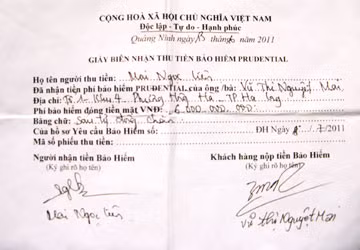 CỘNG HOÀ XÃ HỘI CHỦ NGHĨA VIỆT NAM
Độc lập - Tự do - Hạnh phúc
Quảng Ninh ngày 13 tháng 6 năm 2011
GIẤY BIÊN NHẬN THU TIỀN BẢO HIỂM PRUDENTIAL
Họ tên người thu tiền: Mai Ngọc Liên
Đã nhận tiền phí bảo hiểm PRUDENTIAL của ông/bà: Vũ Thị Nguyệt Mai
Địa chỉ: Tổ 1 - Khu 4 - Phường Hồng Hà - TP Hạ Long
Phí bảo hiểm đóng tiền mặt VND: 6.000.000.000
Bằng chữ: Sáu tỷ đồng chẵn
Của hồ sơ Yêu cầu Bảo Hiểm số: ĐH Ngày /7/2011
Mã số phiếu thu tiền:
Người nhận tiền Bảo Hiểm
(Ký ghi rõ họ tên)
Mai Ngọc Liên
Khách hàng nộp tiền Bảo Hiểm
(Ký ghi rõ họ tên)
Vũ Thị Nguyệt Mai